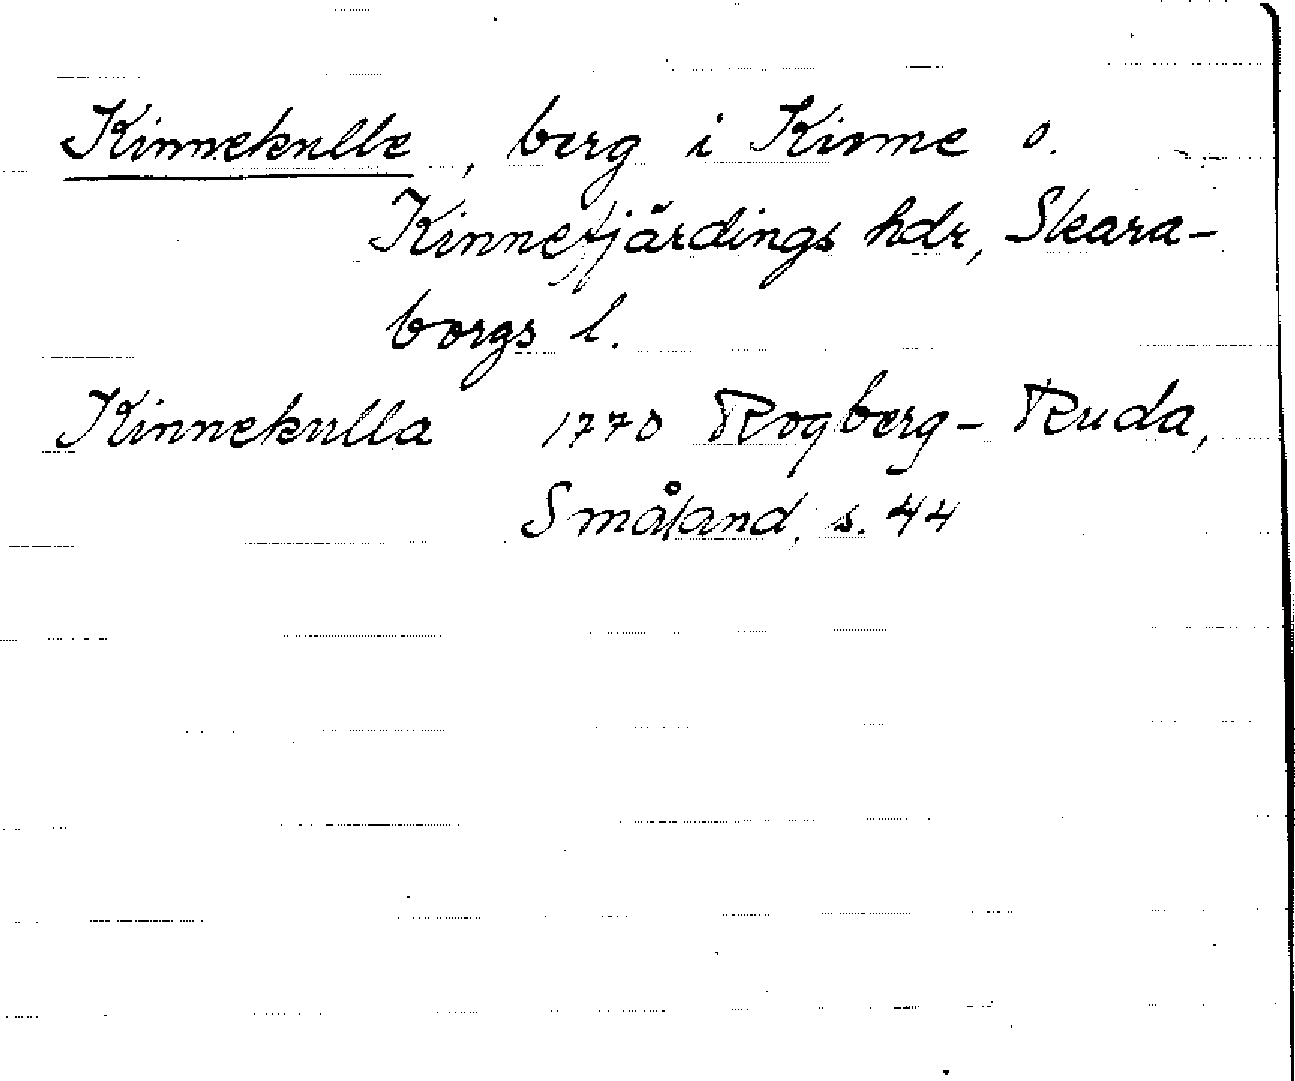 Kinnekulle, berg i Kinne o.
Kinnefjärdings hdr, Skara-
borgs l.
Kinnekulla 1770 Rogberg-Ruda,
Småland, s. 44